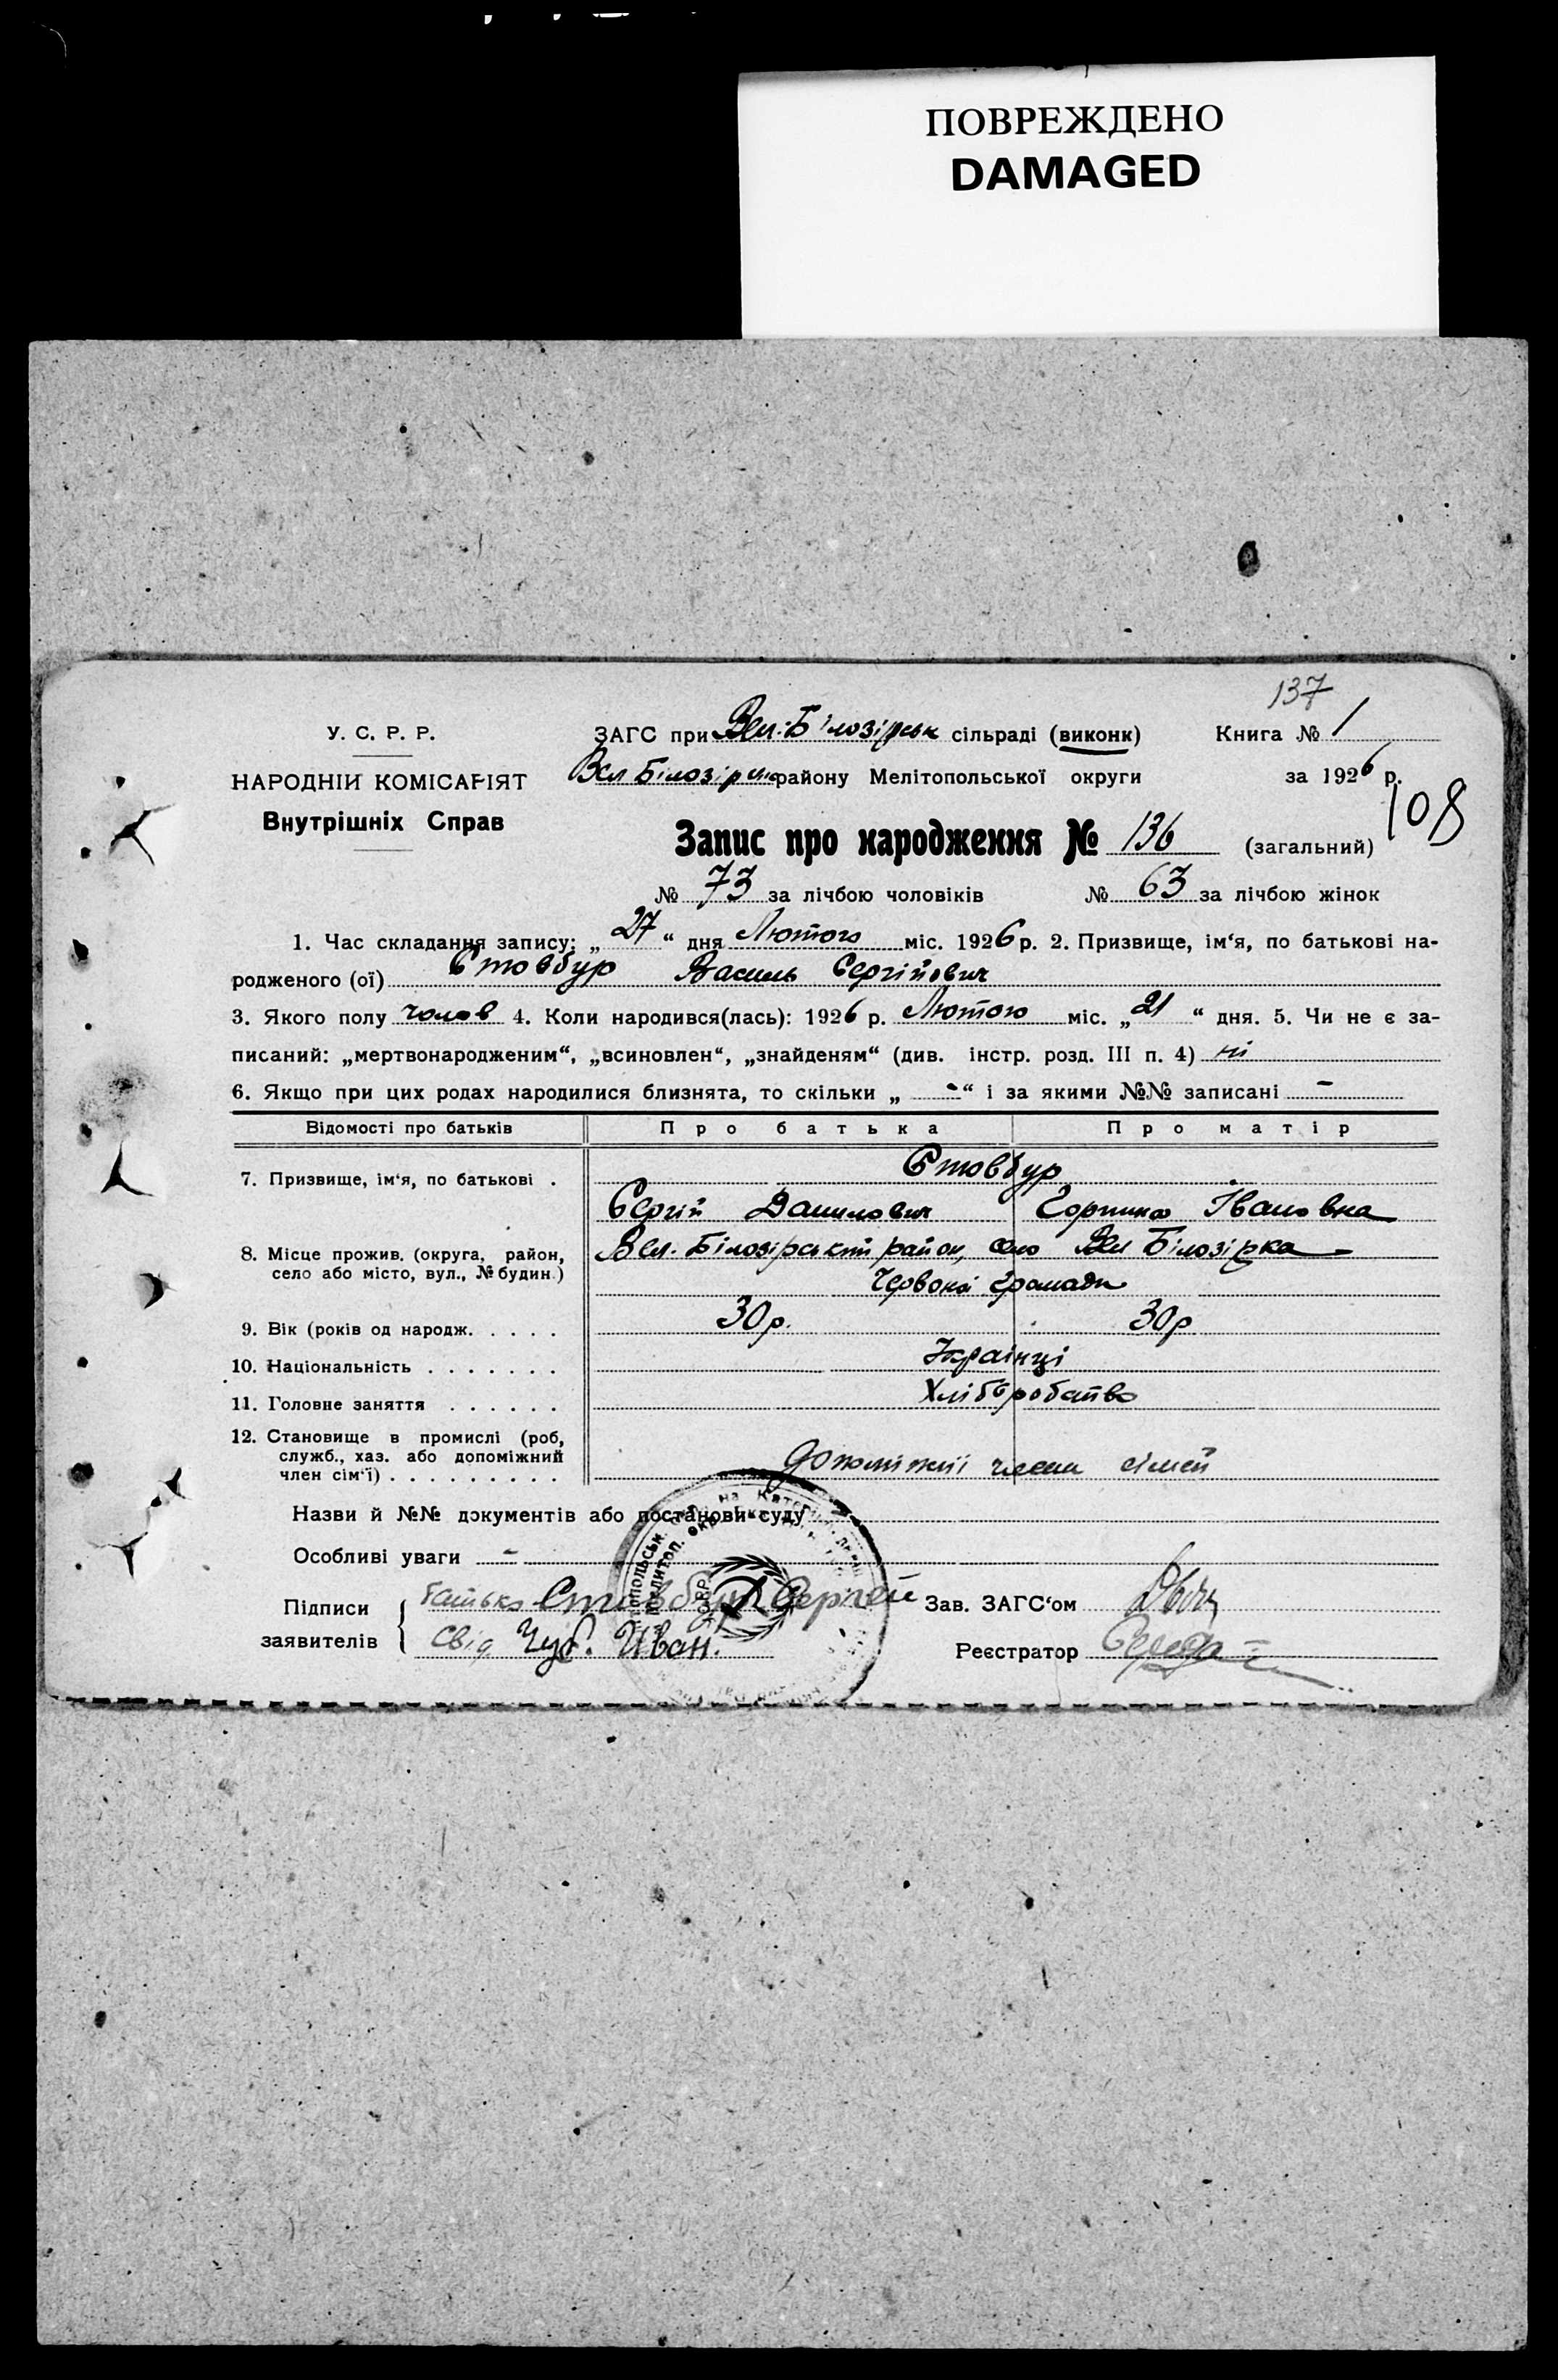 ПОВРЕЖДЕНО
DAMAGED
137
У. С. Р. Р.
ЗАГС при Вел. Білозірськ сільраді (виконк)
Книга № 1
НАРОДНІЙ КОМІСАРІЯТ
Вел Білозірськ району Мелітопольської округи
за 1926 р.
Внутрішніх Справ
108
Запис про народження № 136 (загальний)
№ 73 за лічбою чоловіків № 63 за лічбою жінок
1. Час складання запису: „27“ дня Лютого міс. 1926 р. 2. Призвище, ім‘я, по батькові на-
родженого (ої) Стовбур Василь Сергійович
3. Якого полу чолов 4. Коли народився(лась): 1926 р. Лютого міс. „21“ дня. 5. Чи не є за-
писаний: „мертвонародженим“, „всиновлен“, „знайденям“ (див. інстр. розд. III п. 4) ні
6. Якщо при цих родах народилися близнята, то скільки „ - “ і за якими №№ записані -
Відомості про батьків
Про батька
Про матір
7. Призвище, ім‘я, по батькові .
Стовбур
Сергій Данилович
Горпина Івановна
8. Місце прожив. (округа, район,
село або місто, вул., № будин.)
Вел. Білозірський район, село Вел Білозірка
Червоної громади
9. Вік (років од народж. . . . .
30 р.
30 р
10. Національність . . . . . . .
Українці
11. Головне заняття . . . . . .
Хлібробство
12. Становище в промислі (роб,
служб., хаз. або допоміжний
член сім‘ї) . . . . . . . . .
допоміжні члени сімей
Назви й №№ документів або постанови суду
Особливі уваги -
Підписи
заявителів
батько Стовбур Сергей
свід Чуб. Иван.
Зав. ЗАГС‘ом
Реєстратор Середа